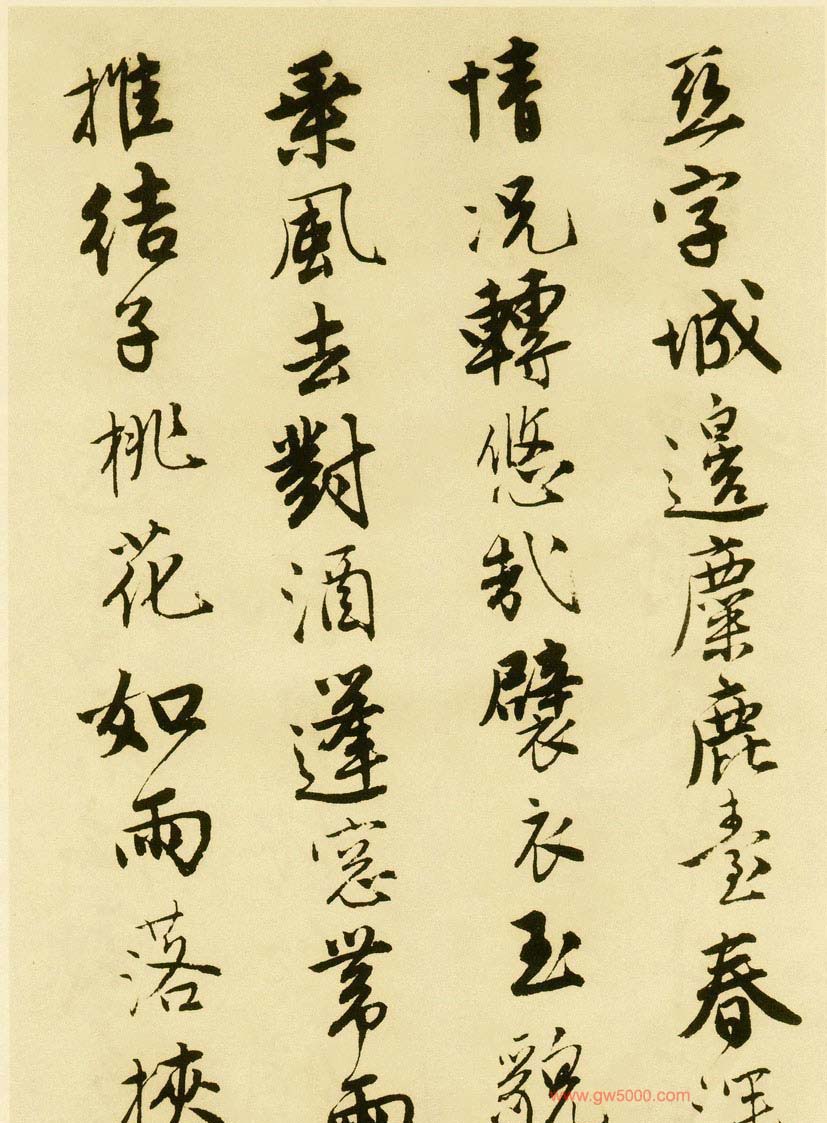 亞字城邊麋鹿臺春深
情况轉悠哉襞衣玉貌
乗風去對酒蓬窓帶雨
推結子桃花如雨落挾
www.gw5000.com